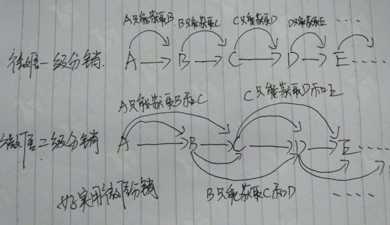 A只能获取B B只能获取C C只能获取D D只能获取E ‥‥
微层一级分销 A → B → C → D → E ‥‥
A只能获取B和C C只能获取D和E
微层二级分销 A → B → C → D → E ‥‥
好实用微层分销 B只能获取C和D ‥‥